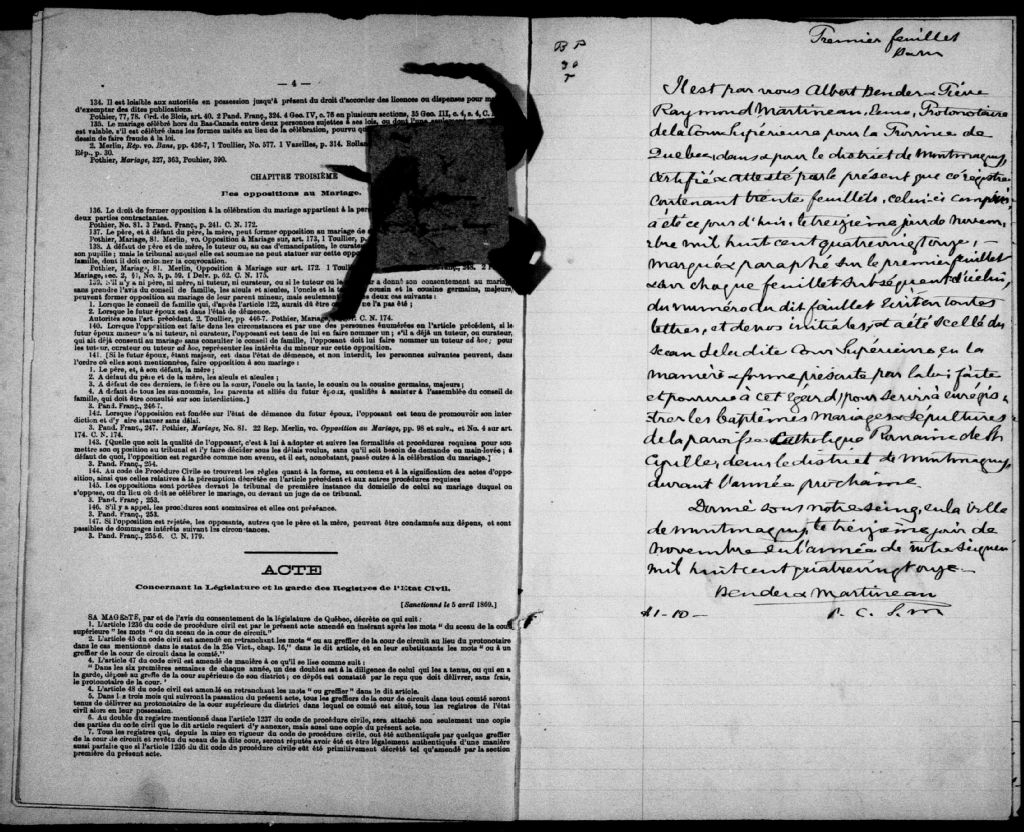 — 4 —
134. Il est loisible aux autorités en possession jusqu'à présent du droit d'accorder des licences ou dispenses pour
d'exempter des dites publications.
Pothier, 77, 78. Ord. de Blois, art. 40. 2 Pand. Franç., 324. 4 Geo. IV, c. 76 en plusieurs sections, 35 Geo. III, c. 4, s. 4, C.
135. Le mariage célébré hors du Bas-Canada entre deux personnes sujettes à ses lois, ou dont l'une
est valable, s'il est célébré dans les formes usités au lieu de la célébration, pourvu
dessin de faire fraude à la loi.
2. Merlin, Rép. vo. Bans, pp. 436-7, 1 Toullier, No. 577. 1 Vazeilles, p. 314. Rolland
Rép., p. 30.
Pothier, Mariage, 327, 363, Pouhier, 390.
CHAPITRE TROISIÈME
Des oppositions au Mariage.
136. Le droit de former opposition à la célébration du mariage appartient à la
deux parties contractantes.
Pothier, No. 81. 3 Pand. Franç., p. 241. C. N. 172.
137. Le père, et à défaut du père, la mère, peut former opposition au mariage de
Pothier, Mariage, 81. Merlin, vo. Opposition à Mariage, sur art. 173, 1 Toullier, p.
138. A défaut de père et de mère, le tuteur ou, au cas d'émancipation, le
son pupille; mais le tribunal auquel elle est soumise ne peut statuer sur cette
famille, dont il doit ordonner la convocation.
Pothier, Mariage, 81. Merlin, Opposition à Mariage, sur art. 172. 1
Mariage, sec. 2, §1, No. 3, p. 59. 1 Delv. p. 62. C. N. 175.
139. S'il n'y a ni père, ni mère, ni tuteur, ni curateur, ou si le tuteur ou le donné son consentement au mariage
sans prendre l'avis du conseil de famille, les aïeuls et aïeules, l'oncle et la cousins germains, majeurs,
peuvent former opposition au mariage de leur parent mineur, mais seulement deux cas suivants:
1. Lorsque le conseil de famille qui, d'après l'article 122, aurait dû être ne l'a pas été;
2. Lorsque le futur époux est dans l'état de démence.
Autorités sous l'art. précédent. 2. Toullier, pp. 446-7. Pothier, Mariage, C. N. 174.
140. Lorsque l'opposition est faite dans les circonstances et par une des personnes énumérées en l'article précédent, si le
futur époux mineur n'a ni tuteur, ni curateur, l'opposant est tenu de lui en faire nommer un; s'il a déjà un tuteur, ou curateur,
qui ait déjà consenti au mariage sans consulter le conseil de famille, l'opposant doit lui faire nommer un tuteur ad hoc; pour
les tuteur, curateur ou tuteur ad hoc, représenter les intérêts du mineur sur cette opposition.
141. [Si le futur époux, étant majeur, est dans l'état de démence, et non interdit, les personnes suivantes peuvent, dans
l'ordre où elles sont mentionnées, faire opposition à son mariage:
1. Le père, et, à son défaut, la mère;
2. A défaut du père et de la mère, les aïeuls et aïeules;
3. A défaut de ces derniers, le frère ou la sœur, l'oncle ou la tante, le cousin ou la cousine germains, majeurs;
4. A défaut de tous les sus-nommés, les parents et alliés du futur époux, qualifiés à assister à l'assemblée du conseil de
famille, qui doit être consulté sur son interdiction.]
3. Pand. Franç., 246-7.
142. Lorsque l'opposition est fondée sur l'état de démence du futur époux, l'opposant est tenu de promouvoir son inter-
diction et d'y faire statuer sans délai.
3. Pand. Franç., 247. Pothier, Mariage, No. 81. 22 Rep. Merlin, vo. Opposition au Mariage, pp. 98 et suiv., et No. 4 sur art.
174. C. N. 174.
143. [Quelle que soit la qualité de l'opposant, c'est à lui à adopter et suivre les formalités et procédures requises pour sou-
mettre son opposition au tribunal et l'y faire décider sous les délais voulus, sans qu'il soit besoin de demande en main-levée; à
défaut de quoi, l'opposition est regardée comme non avenu, et il est, nonobstant, passé outre à la célébration du mariage.]
3. Pand. Franç., 254.
144. Au Code de Procédure Civile se trouvent les règles quant à la forme, au contenu et à la signification des actes d'oppo-
sition, ainsi que celles relatives à la péremption décrétée en l'article précédent et aux autres procédures requises
145. Les oppositions sont portées devant le tribunal de première instance du domicile de celui au mariage duquel on
s'oppose, ou du lieu où doit se célébrer le mariage, ou devant un juge de ce tribunal.
3. Pand. Franç., 253.
146. S'il y a appel, les procédures sont sommaires et elles ont préséance.
3. Pand. Franç., 253.
147. Si l'opposition est rejetée, les opposants, autres que le père et la mère, peuvent être condamnés aux dépens, et sont
passibles de dommages intérêts suivant les circonstances.
3. Pand. Franç., 255-6. C. N. 179.
ACTE
Concernant la Législature et la garde des Registres de l'Etat Civil.
[Sanctionné le 5 avril 1869.]
SA MAGESTÉ, par et de l'avis du consentement de la législature de Québec, décrète ce qui suit:
1. L'article 1236 du code de procédure civil est par le présent acte amendé en insérant après les mots " du sceau de la cour
supérieure " les mots " ou du sceau de la cour de circuit."
2. L'article 45 du code civil est amendé en retranchant les mots " ou au greffier de la cour de circuit au lieu du protonotaire
dans le cas mentionné dans le statut de la 25e Vict., chap. 16," dans le dit article, et en leur substituants les mots " ou à un
greffier de la cour de circuit dans le comté."
4. L'article 47 du code civil est amendé de manière à ce qu'il se lise comme suit:
" Dans les six premières semaines de chaque année, un des doubles est à la diligence de celui qui les a tenus, ou qui en a
la garde, déposé au greffe de la cour supérieure de son district; ce dépôt est constaté par le reçu que doit délivrer, sans frais,
le protonotaire de la cour. "
4. L'article 48 du code civil est amendé en retranchant les mots " ou greffier " dans le dit article.
5. Dans les trois mois qui suivront la passation du présent acte, tous les greffiers de la cour de circuit dans tout comté seront
tenus de délivrer au protonotaire de la cour supérieure du district dans lequel ce comté est situé, tous les registres de l'état
civil alors en leur possession.
6. Au double du registre mentionné dans l'article 1237 du code de procédure civile, sera attaché non seulement une copie
des parties du code civil que le dit article requiert d'y annexer, mais aussi une copie du présent acte.
7. Tous les registres qui, depuis la mise en vigueur du code de procédure civile, ont été authentiqués par quelque greffier
de la cour de circuit et revêtu du sceau de la dite cour, seront réputés avoir été et être légalement authentiqués d'une manière
aussi parfaite que si l'article 1236 du dit code de procédure civile eût été primitivement décrété tel qu'amendé par la section
première du présent acte.
B P
Premier feuillet
Il est par nous Albert Bender & Pierre
Raymond Martineau, Protonotaire
de la Cour Supérieure pour la Province de
Québec, dans & pour le district de Montmagny,
certifié & attesté par le présent que ce régistre
contenant trente feuillets, celui-ci compris
a été ce jour d'hui, le treizième jour de Novem-
bre mil huit cent quatrevingt onze, —
marqué & paraphé sur le premier feuillet
& sur chaque feuillet subséquent d'icelui,
du numéro du dit feuillet écrit en toutes
lettres, et de nos initiales, et a été scellé du
sceau de la dite Cour Supérieure en la
manière & forme présente par la loi faite
et pourvue à cet égard, pour servir à enrégis-
trer les baptêmes Mariages & sépultures
de la paroisse Catholique Romaine de St
Cyrille, dans le district de Montmagny,
durant l'année prochaine.
Donné sous notre seing, en la Ville
de Montmagny, le treizième jour de
Novembre en l'année de notre Seigneur
mil huit cent quatrevingt onze —
Bender & Martineau
$1-10- P. C. S. M